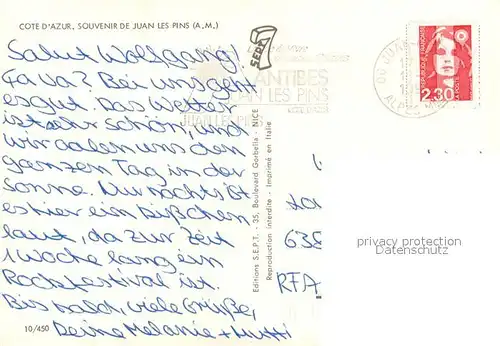 COTE D'AZUR, SOUVENIR DE JUAN LES PINS (A.M.)
Salut Wolfgang!
Ça va? Bei uns geht
es gut. Das Wetter
ist sehr schön, und
wir aalen uns den
ganzen Tag in der
Sonne. Nur nachts ist
es hier ein bißchen
laut, da zur Zeit
1 Woche lang ein
Rockfestival ist.
Bis bald, viele Grüße,
Deine Melanie + Mutti
10/450
SEPT
ANTIBES
JUAN LES PINS
JUAN LES PINS
Editions S.E.P.T. - 35, Boulevard Gorbella - NICE
Reproduction interdite - Imprimé en Italie
06 JUAN
REPUBLIQUE FRANÇAISE
2,30
LA POSTE
638
RFA
privacy protection
Datenschutz